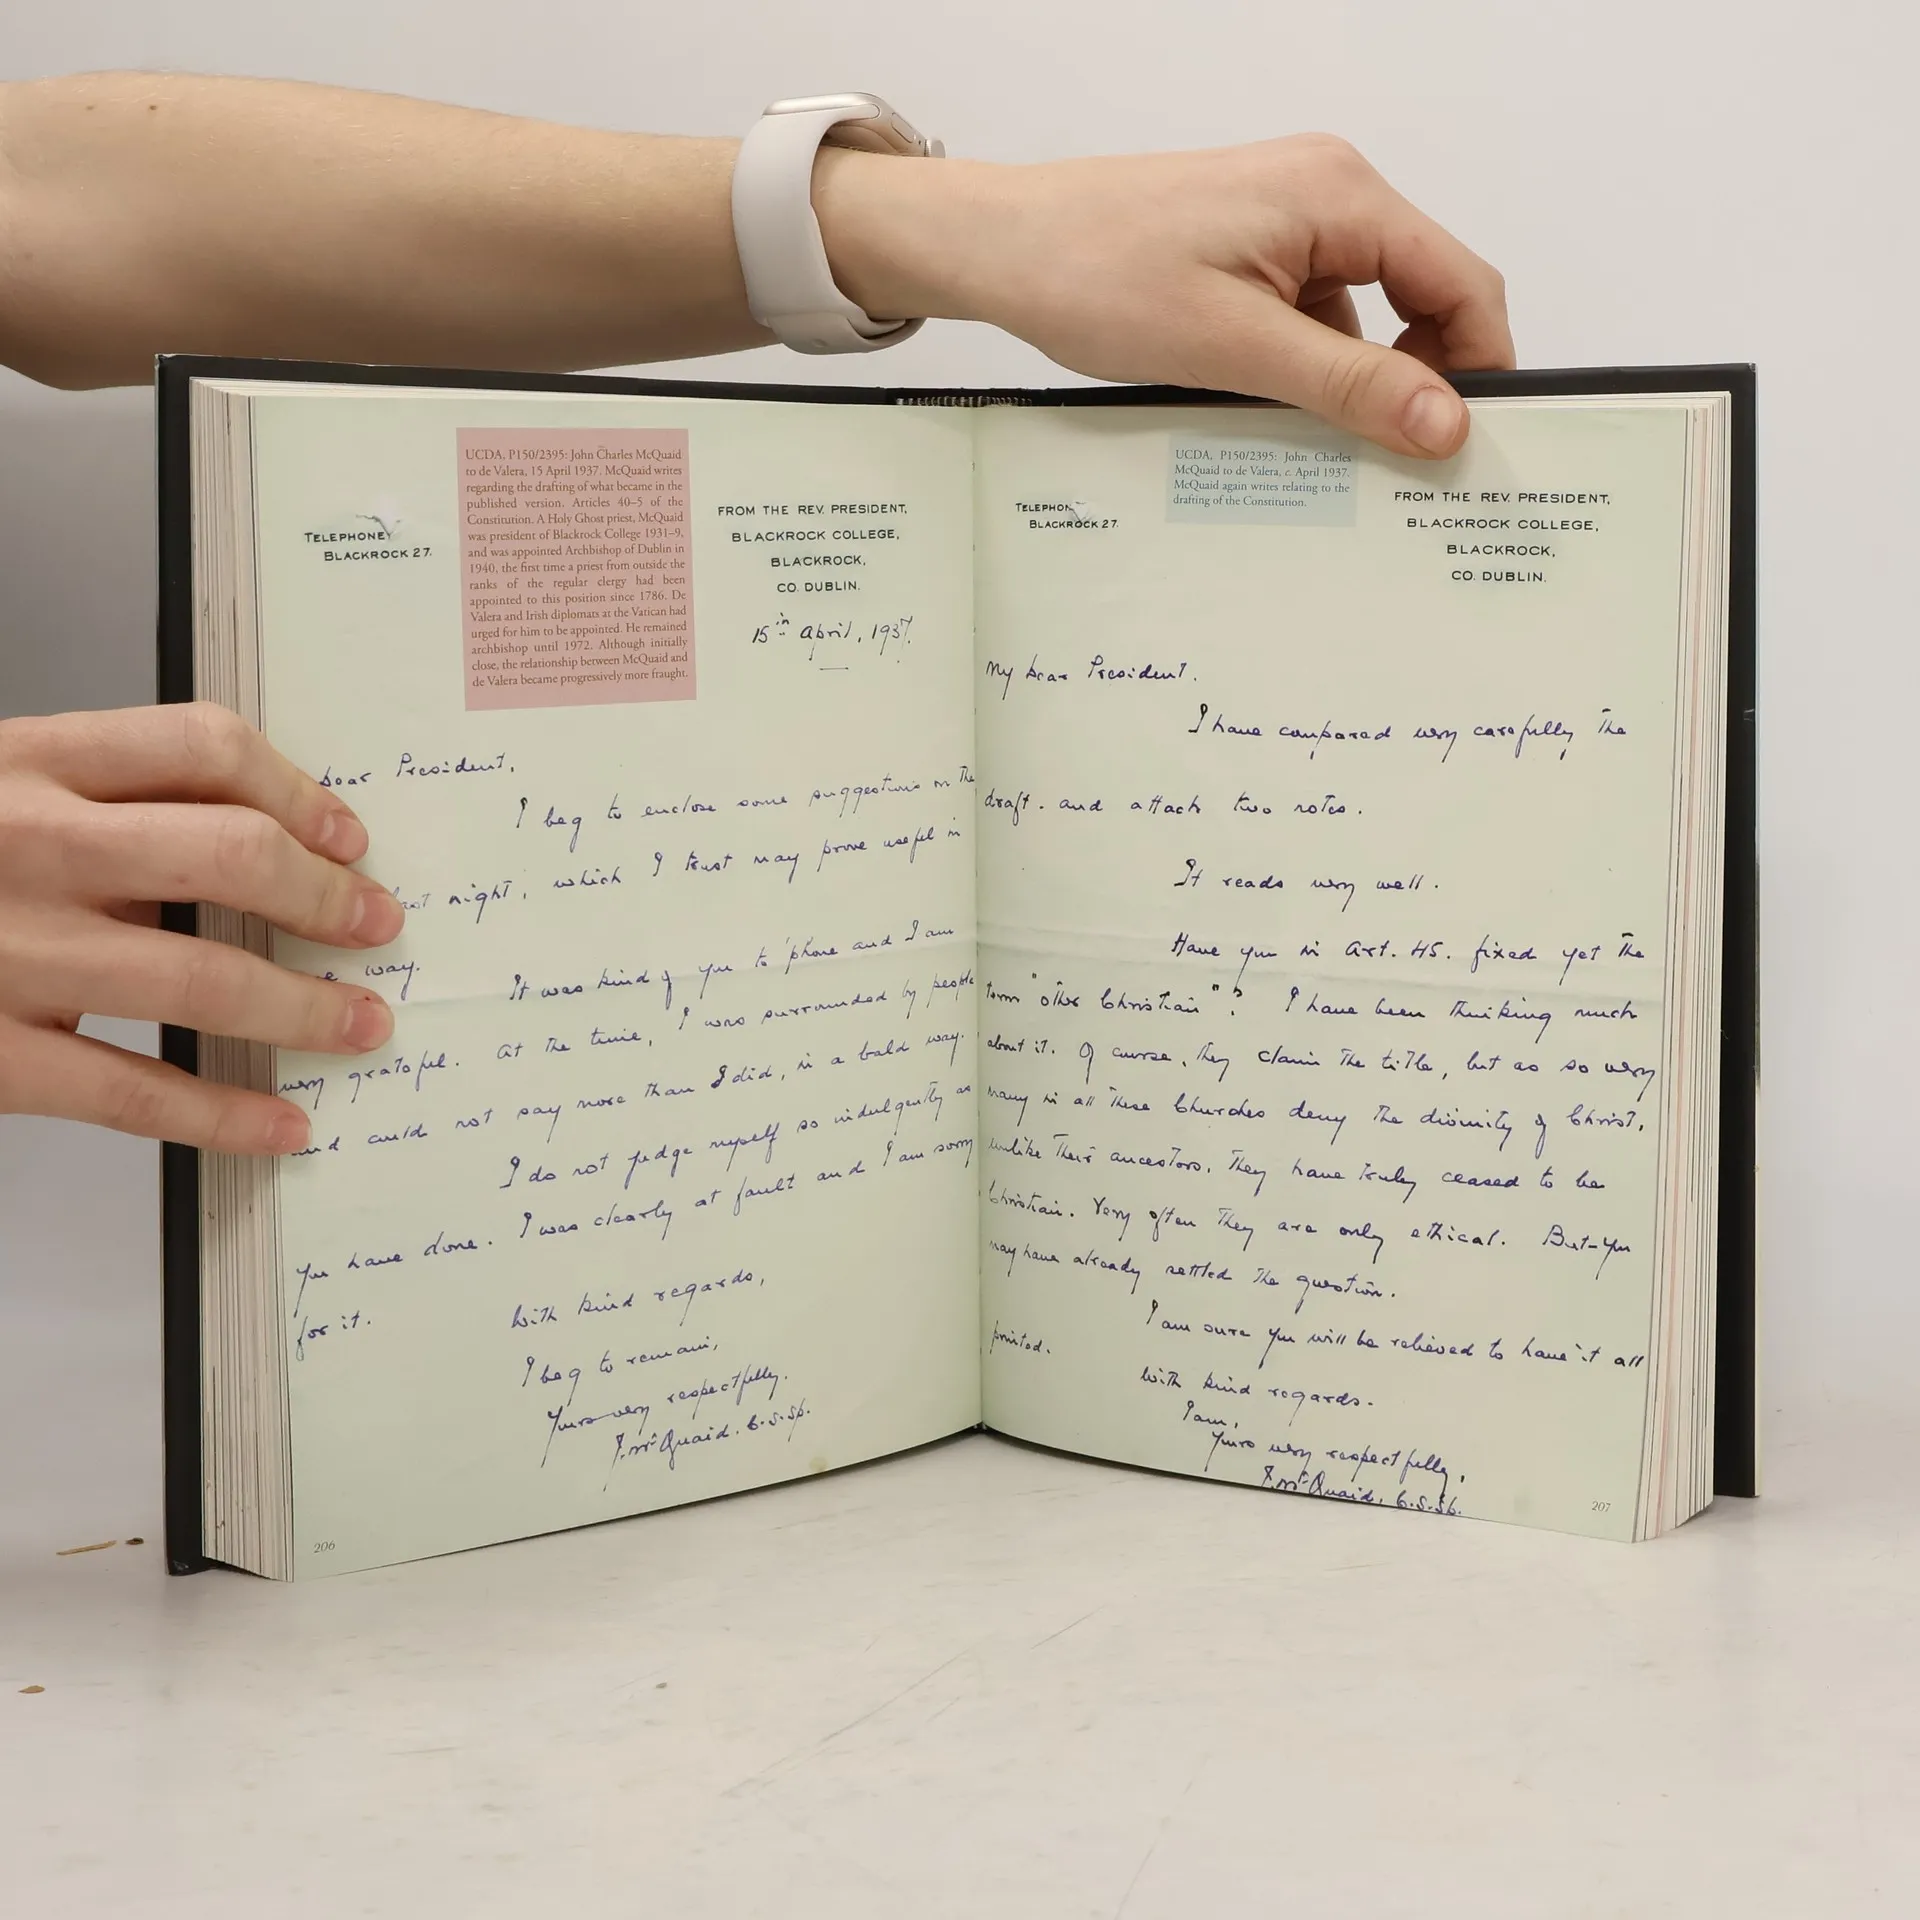 TELEPHONE
BLACKROCK 27.
UCDA, P150/2395: John Charles McQuaid
to de Valera, 15 April 1937. McQuaid writes
regarding the drafting of what became in the
published version. Articles 40–5 of the
Constitution. A Holy Ghost priest, McQuaid
was president of Blackrock College 1931–9,
and was appointed Archbishop of Dublin in
1940, the first time a priest from outside the
ranks of the regular clergy had been
appointed to this position since 1786. De
Valera and Irish diplomats at the Vatican had
urged for him to be appointed. He remained
archbishop until 1972. Although initially
close, the relationship between McQuaid and
de Valera became progressively more fraught.
FROM THE REV. PRESIDENT,
BLACKROCK COLLEGE,
BLACKROCK,
CO. DUBLIN.
15th April, 1937.
Dear President,
I beg to enclose some suggestions on the
last night, which I trust may prove useful in
way.
It was kind of you to 'phone and I am
very grateful. At the time, I was surrounded by people
and could not say more than I did, in a bald way.
I do not judge myself so indulgently as
you have done. I was clearly at fault and I am sorry
for it.
With kind regards,
I beg to remain,
Yours very respectfully.
J. McQuaid. C.S.Sp.
206
TELEPHON
BLACKROCK 27.
UCDA, P150/2395: John Charles
McQuaid to de Valera, c. April 1937.
McQuaid again writes relating to the
drafting of the Constitution.
FROM THE REV. PRESIDENT,
BLACKROCK COLLEGE,
BLACKROCK,
CO. DUBLIN.
My dear President.
I have compared very carefully the
draft. and attach two notes.
It reads very well.
Have you in Art. 45. fixed yet the
term "other Christian"? I have been thinking much
about it. Of course, they claim the title, but as so very
many in all these Churches deny the divinity of Christ,
unlike their ancestors, they have truly ceased to be
Christian. Very often they are only ethical. But you
may have already settled the question.
I am sure you will be relieved to have it all
printed.
With kind regards.
I am,
Yours very respectfully,
J. McQuaid, C.S.Sp.
207